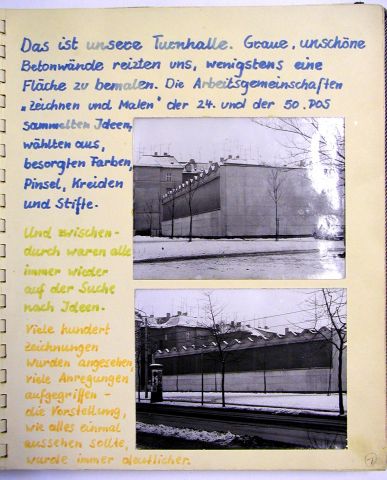 Das ist unsere Turnhalle. Graue, unschöne
Betonwände reizten uns, wenigstens eine
Fläche zu bemalen. Die Arbeitsgemeinschaften
„Zeichnen und Malen" der 24. und der 50. POS
sammelten Ideen,
wählten aus,
besorgten Farben,
Pinsel, Kreiden
und Stifte.
Und zwischen-
durch waren alle
immer wieder
auf der Suche
nach Ideen.
Viele hundert
Zeichnungen
wurden angesehen,
viele Anregungen
aufgegriffen –
die Vorstellung,
wie alles einmal
aussehen sollte,
wurde immer deutlicher.